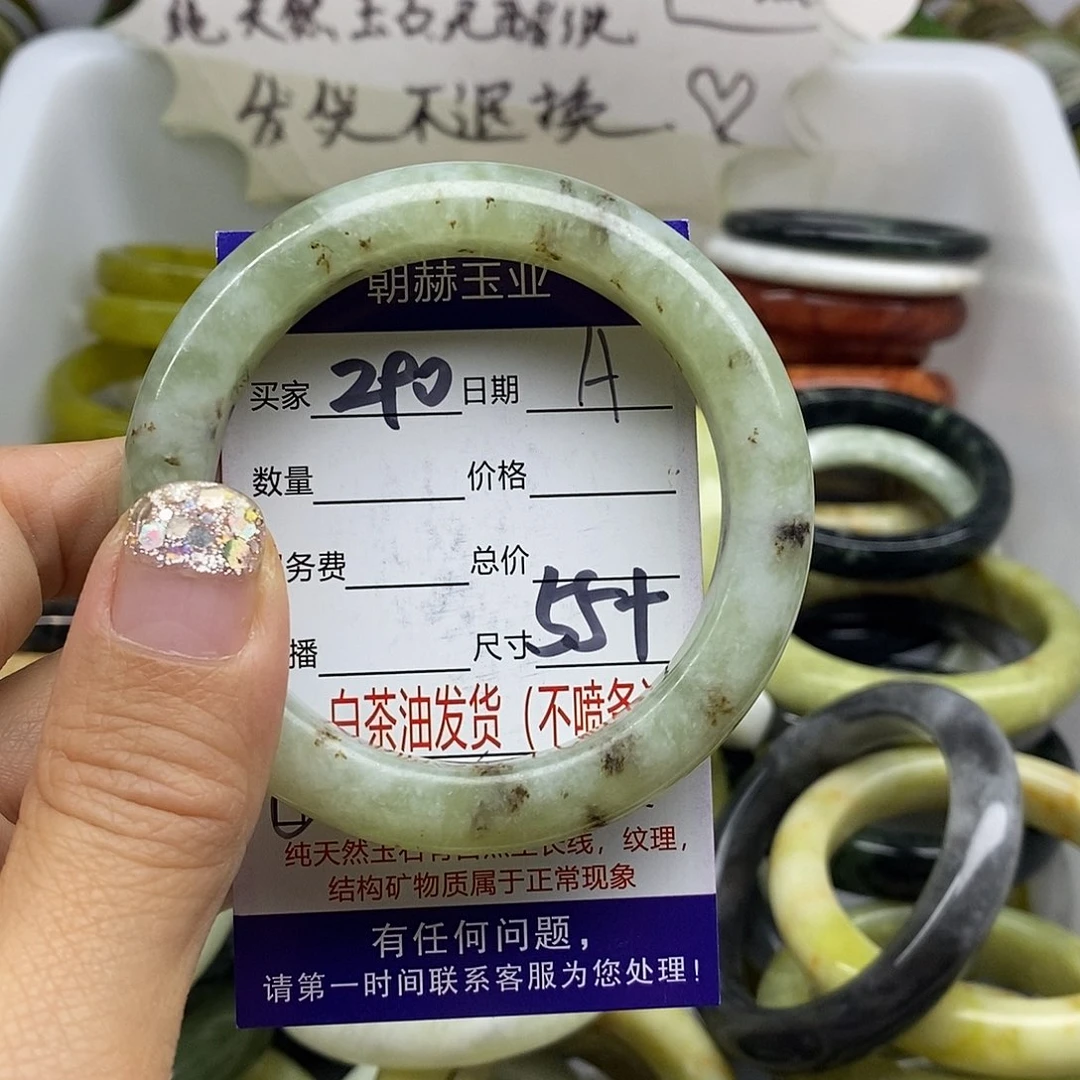 纯天然玉石无酸洗
发货不退换
朝赫玉业
买家 290 日期 A
数量 价格
务费 总价
播 尺寸 55+
白茶油发货(不喷
纯天然玉石有自然生长线,纹理,
结构矿物质属于正常现象
有任何问题,
请第一时间联系客服为您处理!